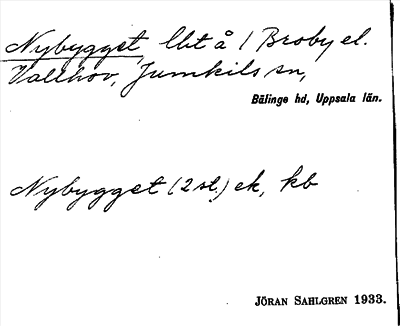 Nybygget, lht å 1 Broby el.
Vallhov, Jumkils sn,
Bälinge hd, Uppsala län.
Nybygget (2 st.) ek, kb
JÖRAN SAHLGREN 1933.